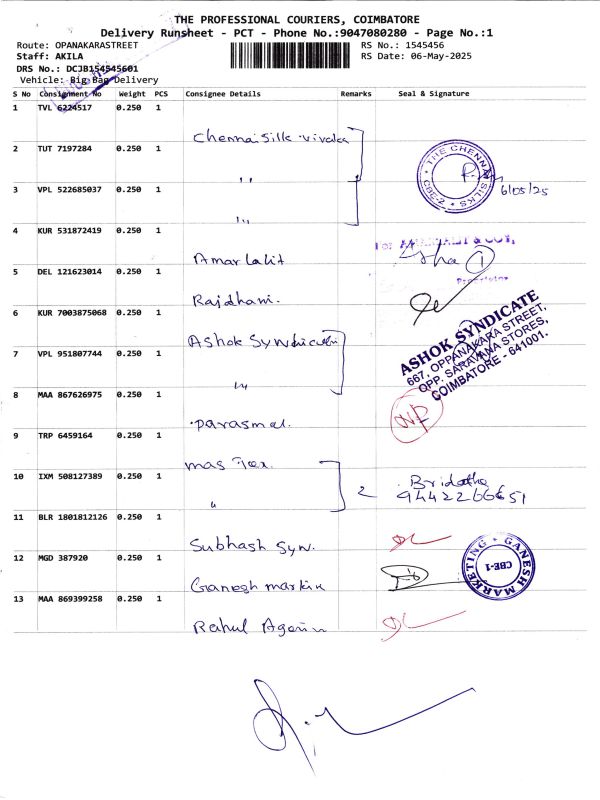 THE PROFESSIONAL COURIERS, COIMBATORE
Delivery Runsheet - PCT - Phone No.:9047080280 - Page No.:1
Route: OPANAKARASTREET
RS No.: 1545456
Staff: AKILA
RS Date: 06-May-2025
DRS No.: DCJB154545601
Vehicle: Big Bag Delivery
S No Consignment No Weight PCS Consignee Details Remarks Seal & Signature
1 TVL 6224517 0.250 1
Chennai Silk
2 TUT 7197284 0.250 1
THE CHENNAI SILKS CBE-2
6/05/25
3 VPL 522685037 0.250 1
4 KUR 531872419 0.250 1
Amar Lalit
For & COY.
Proprietor
5 DEL 121623014 0.250 1
Rajdhani.
6 KUR 7003875068 0.250 1
Ashok Syndicate
ASHOK SYNDICATE
667, OPPANAKARA STREET,
OPP. SARAVANA STORES,
COIMBATORE - 641001.
7 VPL 951807744 0.250 1
8 MAA 867626975 0.250 1
Parasmal.
9 TRP 6459164 0.250 1
mas Tex.
10 IXM 508127389 0.250 1
2
11 BLR 1801812126 0.250 1
Subhash Syn.
12 MGD 387920 0.250 1
Ganesh
GANESH MARKETING CBE-1
13 MAA 869399258 0.250 1
Rahul